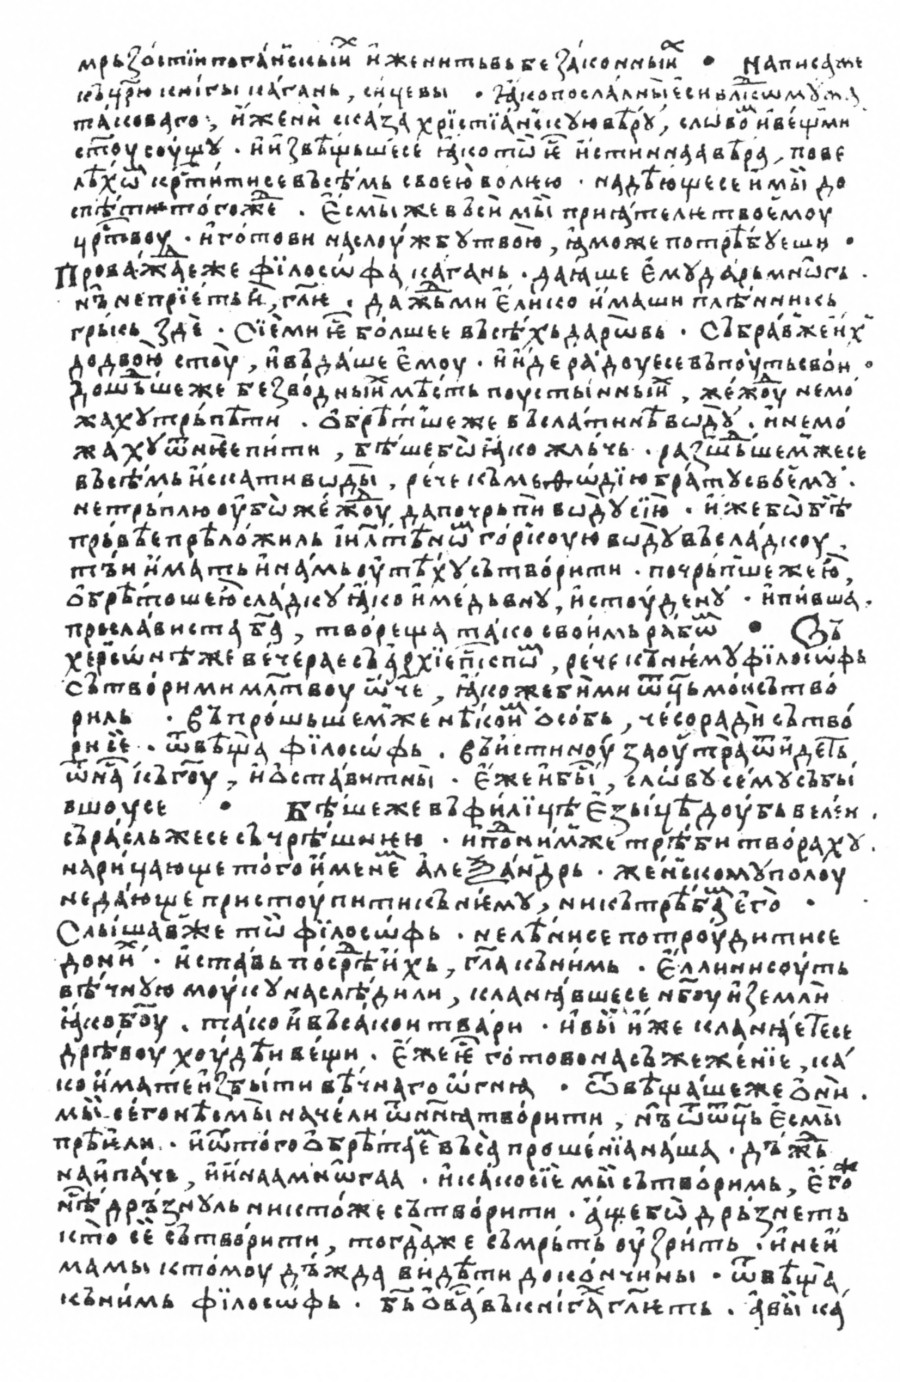 мрьзостїи поганⷭ҇кыиⷯ и женитвь беⷥзаконныиⷯ • Написаже
къ црю книгы каганъ, сицевы • ꙗко послалъ ны еси влⷣко мѹжа
таковаго, иже ни сказа хрїстїанскѹю вѣрѹ, словоⷨ и вещми
ст҃ѹ сѹщѹ · и извѣщьшесе ꙗко то е҃ истиннаа вѣра, пове
лѣхѡⷨ крⷭтитисе въсѣмь своею волею · надѣющесе и мы до
спѣти тогожⷣе · Есмы же въси мы прїатели твоемѹ
црⷭтвѹ · и готови на слоужбѹ твою, ꙗможе потрѣбѹеши ·
Провождⷣае же фїлософа каганъ · даꙗше емѹ дары мнѡгы ·
нъ не прїетъ и, гл҃е · даждⷣь ми елико имаши плѣнникь
грькь зде · Сїе ми е҃ болшее въсѣхь даровь · Събравⷲже ихⷯ
до двою стоу, и въдаше емоу · и иде радоуесе въ поуть свои ·
Дошⷣьше же безводныихⷯ мѣсть поустынныихⷯ, жеждⷣоу немо
жахѹ трьпѣти · Обрѣтше же въ слатинѣ водѹ · и немо
жахѹ ѿ нее пити, бѣше бо ꙗко жльчь · разшⷣьшем же се
въсѣмь искати воды, рече къ меѳодїю братѹ своемѹ ·
не трьплю оубо жеждⷣоу да почрьпи водѹ сїю · иже бо бѣ
прьвѣе прѣложиль іил҃тѣномⷨ горкоую водѹ въ сладкоу,
тъи имать и намь оутѣхѹ сътворити · почрьпше же ю,
обрѣтоше ю сладкѹ ꙗко и медьвнѹ, и стоуденѹ · и пивша
прослависта ба҃, твореща тако своимь рабѡⷨ • Въ
херсонѣ же вечерае съ архїепⷭкпомⷨ, рече къ немѹ фїлософь
сътвори ми млⷭтвоу ѡч҃е, ꙗкоже би ми ѿц҃ь мои сътво
риль · Въпрошьшем же нѣкоимⷨ особь, чесо ради сътво
ри се · ѿвѣща фїлософь · Въ истинноу заоутра ѿидеть
ѿ на҃ къ гоу҃, и оставит ны · Еже и бы, словѹ семѹ събы
вшоусе • Бѣше же въ фили цѣ езыцѣ доубь велеи,
съраслъжесе съ чрѣшнѥю · и под нимⷨже трѣби твораху,
наричающе того именемⷨ алеѯандрь · женⷭкомѹ полоу
не дающе пристоупити къ немѹ, ни къ трѣбамⷨ его ·
Слышавⷲже то фїлософь · не лѣнисе потроудитисе
до нихⷯ · и ставь посрⷣѣ ихь, гла҃ къ нимь · Еллини соуть
вѣчнѹю моукѹ наслѣдили, кланꙗвшесе нбоу҃ и земли
ꙗко боу҃, тако и въсакои твари · и вы иже кланꙗетесе
дрѣвоу хоудѣи вещи · Еже е҃ готово на съжеженїе, ка
ко имате избыти вѣчнаго огнꙗ · ѿвѣщаше же они,
мы сего нѣсмы начели ѿ ннꙗ творити, нъ ѿ ѿц҃ь есмы
прѣели · и ѿ того обрѣтаемⷨ въса прошенїа наша · дъждⷣь
наипаче, и ина а мнѡгаа · и како сїе мы сътворимь, егоⷤ
нѣⷭ дръзнуль никтоже сътворити · аще бо дрьзнеть
кто се сътворити, тогда же съмрьть оузрить · и не и
мамы ктомоу дъжда видѣти до кончины · ѿвѣща
къ нимь фїлософь · бъ҃ о ва҃ въ книгахⷯ гл҃еть · а вы ка